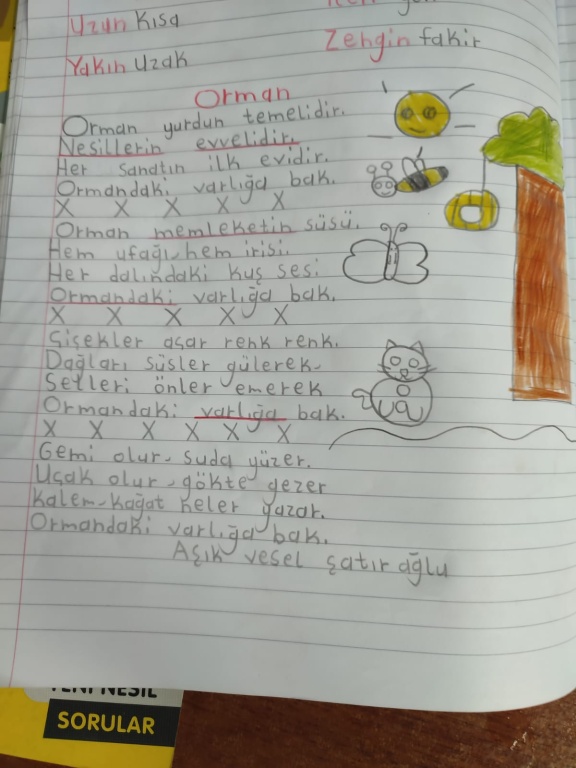 Uzun Kısa
Zengin fakir
Yakın Uzak
Orman
Orman yurdun temelidir.
Nesillerin evvelidir.
Her sanatın ilk evidir.
Ormandaki varlığa bak.
X X X X X
Orman memleketin süsü.
Hem ufağı, hem irisi.
Her dalındaki kuş sesi
Ormandaki varlığa bak.
X X X X X
Çiçekler açar renk renk.
Dağları süsler gülerek.
Selleri önler emerek
Ormandaki varlığa bak.
X X X X X X
Gemi olur. suda yüzer.
Uçak olur. gökte gezer
Kalem-kağat neler yazar.
Ormandaki varlığa bak.
Aşık vesel şatır ağlu
YENİ NESİL
SORULAR